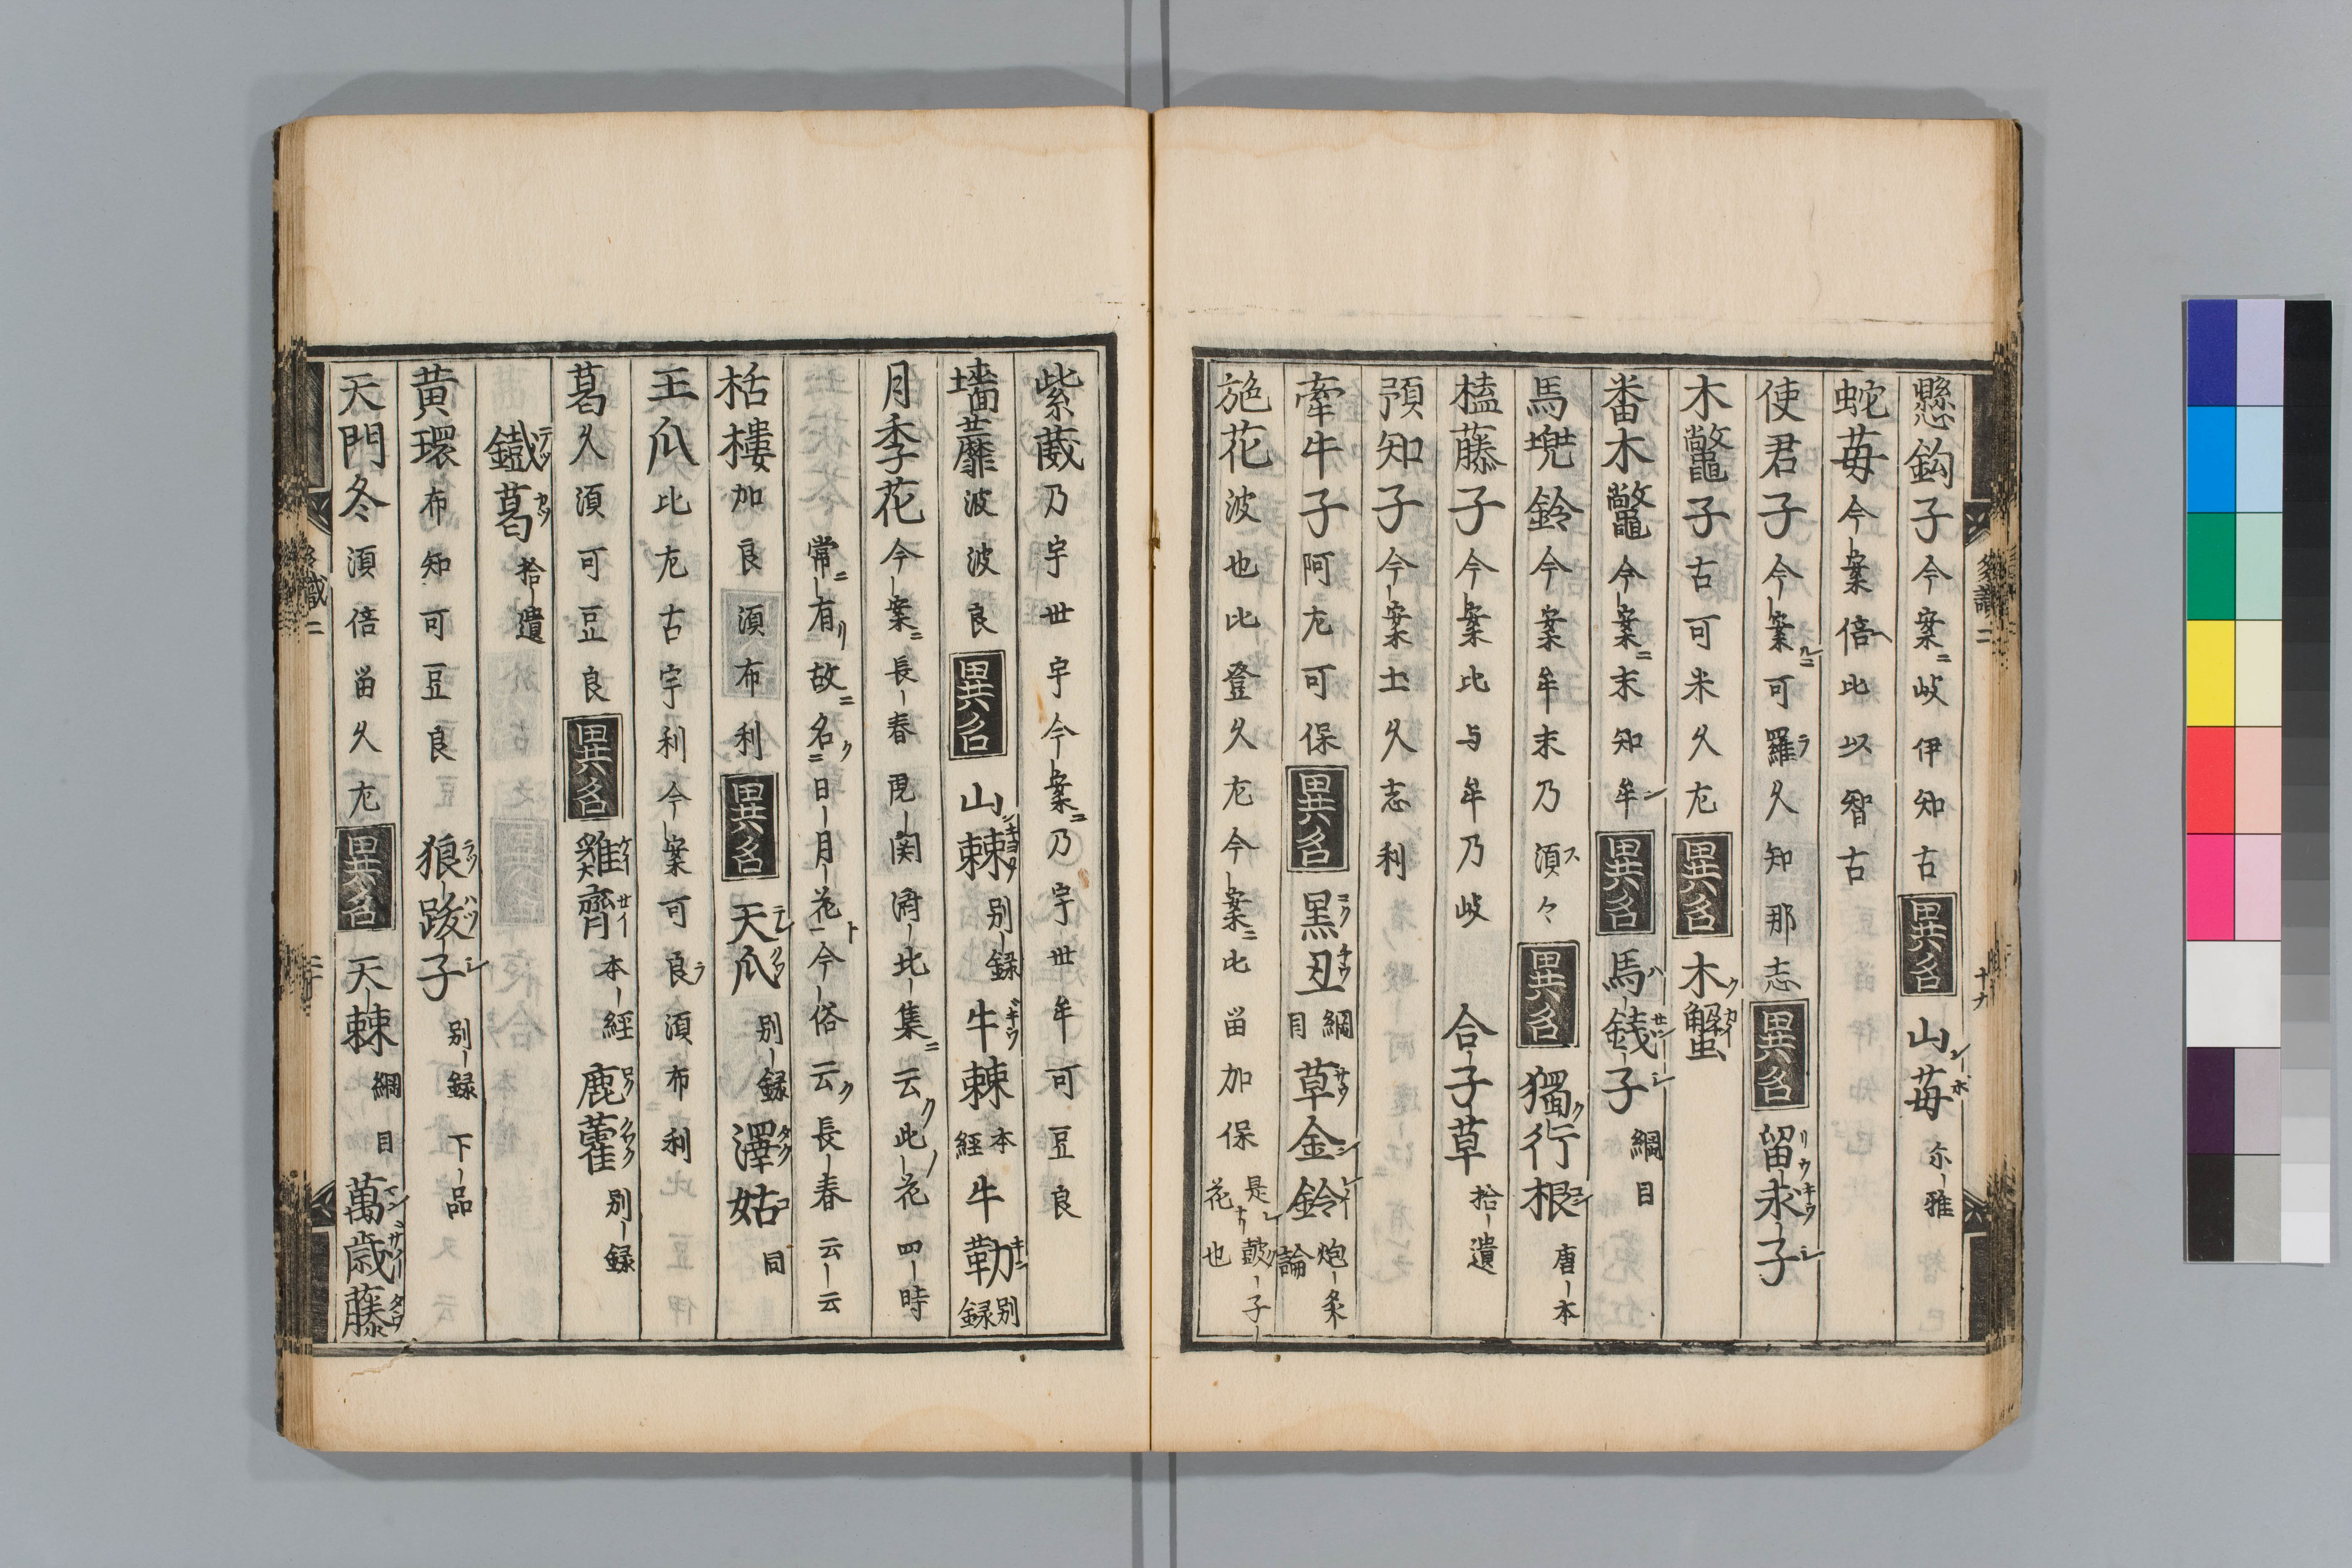 懸鈎子今案ニ岐伊知古異名山苺尓雅
蛇苺今案倍比以智古
使君子今案ルニ可羅久知那志異名留求子
木鼈子古可米久尢異名木蟹
番木鼈今案ニ末知牟異名馬錢子綱目
馬兜鈴今案牟末乃須々異名獨行根唐本
榼藤子今案比与牟乃岐 合子草拾遺
預知子今案士久志利
牽牛子阿尢可保異名黒丑綱目草金鈴炮炙論
旋花波也比登久尢今案ニ比畄加保是ナリ皷子花也
紫葳乃宇世宇今案ニ乃宇世牟可豆良
墻蘼波波良異名山棘別録牛棘本経牛勒別録
月季花今案ニ長春閲濟北集ニ云ク此ノ花四時
常ニ有リ故ニ名ク二日月花ト一今俗云ク長春云云
栝樓加良須布利異名天瓜別録澤姑同
王瓜比尢古宇利今案可良須布利
葛久須可豆良異名雞齊本經鹿藿別録
鐵葛拾遺
黄環布知可豆良 狼跋子別録下品
天門冬須倍畄久尢異名天棘綱目萬歳藤